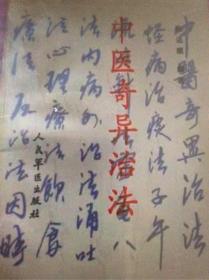 中医奇异治法
中醫奇異治法
怪病治痰法子午
法内病外治法涌吐
法心理療法飲食
療法反治法因時
人民軍医出版社